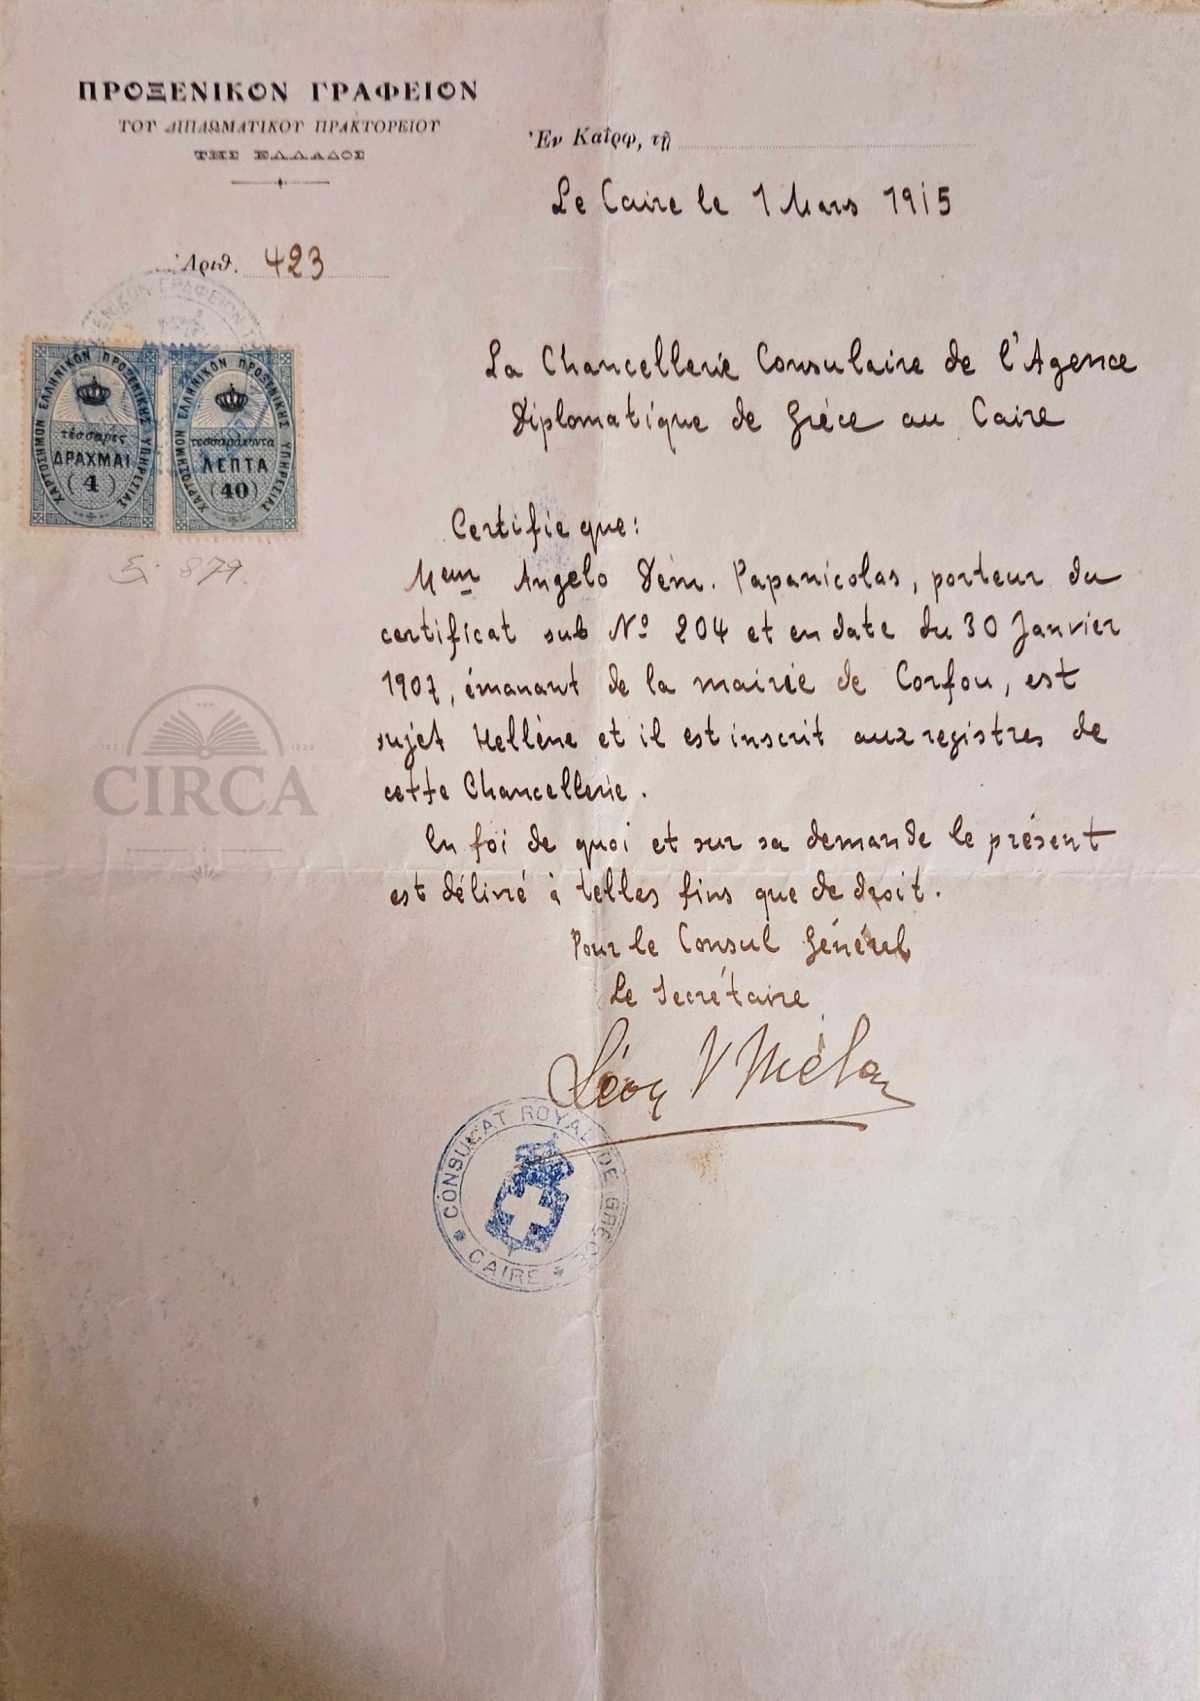 ΠΡΟΞΕΝΙΚΟΝ ΓΡΑΦΕΙΟΝ
ΤΟΥ ΔΙΠΛΩΜΑΤΙΚΟΥ ΠΡΑΚΤΟΡΕΙΟΥ
ΤΗΣ ΕΛΛΑΔΟΣ
Ἐν Καΐρῳ, τῇ
Le Caire le 1 Mars 1915
Ἀριθ. 423
ΠΡΟΞΕΝΙΚΟΝ ΓΡΑΦΕΙΟΝ
ΧΑΡΤΟΣΗΜΟΝ ΕΛΛΗΝΙΚΟΝ ΠΡΟΞΕΝΙΚΗΣ ΥΠΗΡΕΣΙΑΣ
τέσσαρες
ΔΡΑΧΜΑΙ
(4)
ΧΑΡΤΟΣΗΜΟΝ ΕΛΛΗΝΙΚΟΝ ΠΡΟΞΕΝΙΚΗΣ ΥΠΗΡΕΣΙΑΣ
τεσσαράκοντα
ΛΕΠΤΑ
(40)
879
La Chancellerie Consulaire de l'Agence
Diplomatique de Grèce au Caire
Certifie que:
Meur Angelo Dém. Papanicolas, porteur du
certificat sub Nº 204 et en date du 30 Janvier
1907, émanant de la mairie de Corfou, est
sujet Hellène et il est inscrit aux registres de
cette Chancellerie.
En foi de quoi et sur sa demande le présent
est délivré à telles fins que de droit.
Pour le Consul Général
Le Secrétaire
Léon V Mélas
CONSULAT ROYAL DE GRÈCE
* CAIRE *
CIRCA